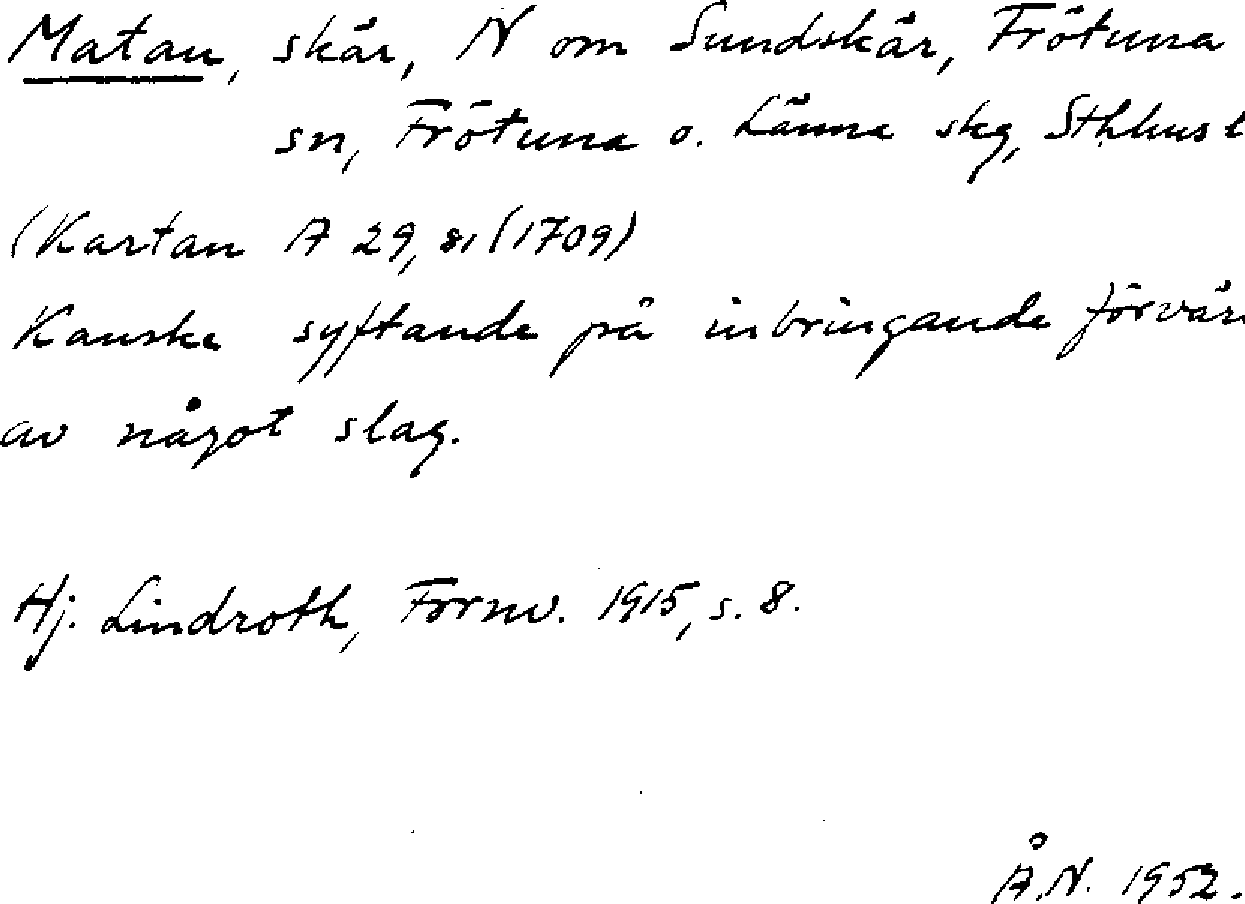 Matan, skär, N om Sundskär, Frötuna
sn, Frötuna o. Länna skg, Sthlms l
(Kartan A 29, 81 (1709)
Kanske syftande på inbringande förvär
av något slag.
Hj. Lindroth, Fornv. 1915, s. 8.
Å.N. 1952.